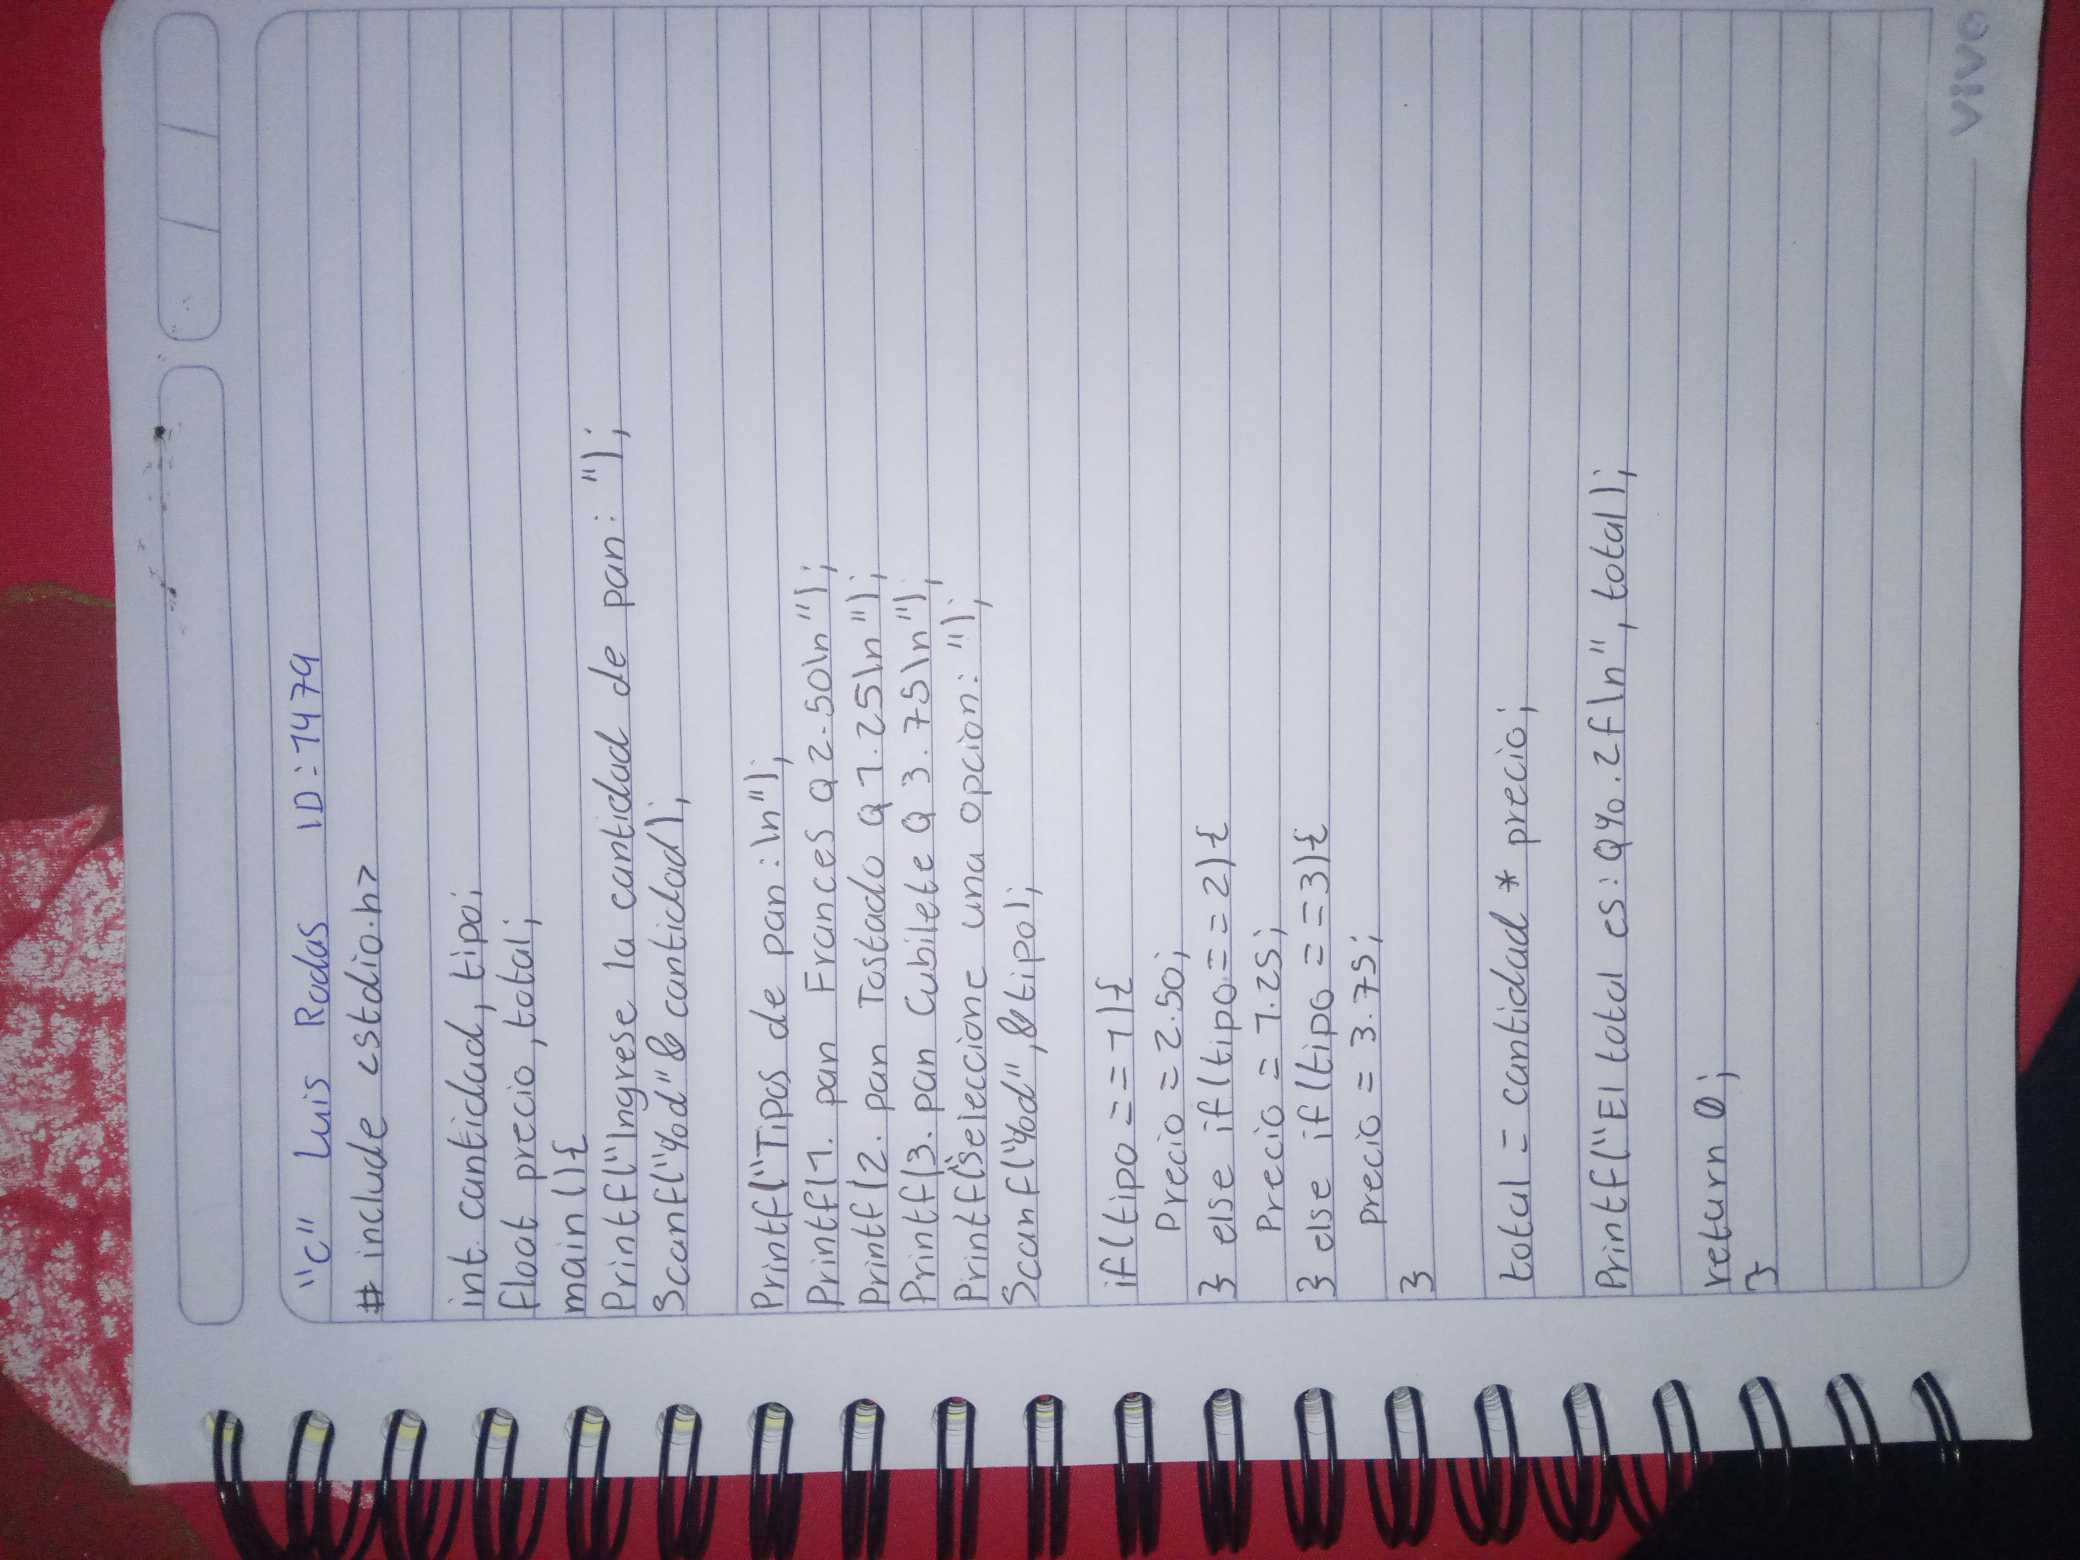 "C" Luis Rodas ID:1479
# include <stdio.h>
int cantidad, tipo;
float precio, total;
main(){
Printf("Ingrese la cantidad de pan: ");
Scanf("%d" & cantidad);
Printf("Tipos de pan:\n");
Printf(1. pan Frances Q2.50\n");
Printf(2. pan Tostado Q1.25\n");
Printf(3. pan Cubilete Q3.75\n");
Printf("seleccione una opcion: ");
Scanf("%d", &tipo);
if(tipo == 1){
Precio = 2.50;
} else if(tipo == 2){
Precio = 1.25;
} else if(tipo == 3){
precio = 3.75;
}
total = cantidad * precio;
Printf("El total es: Q%.2f\n", total);
return 0;
}
VIVO